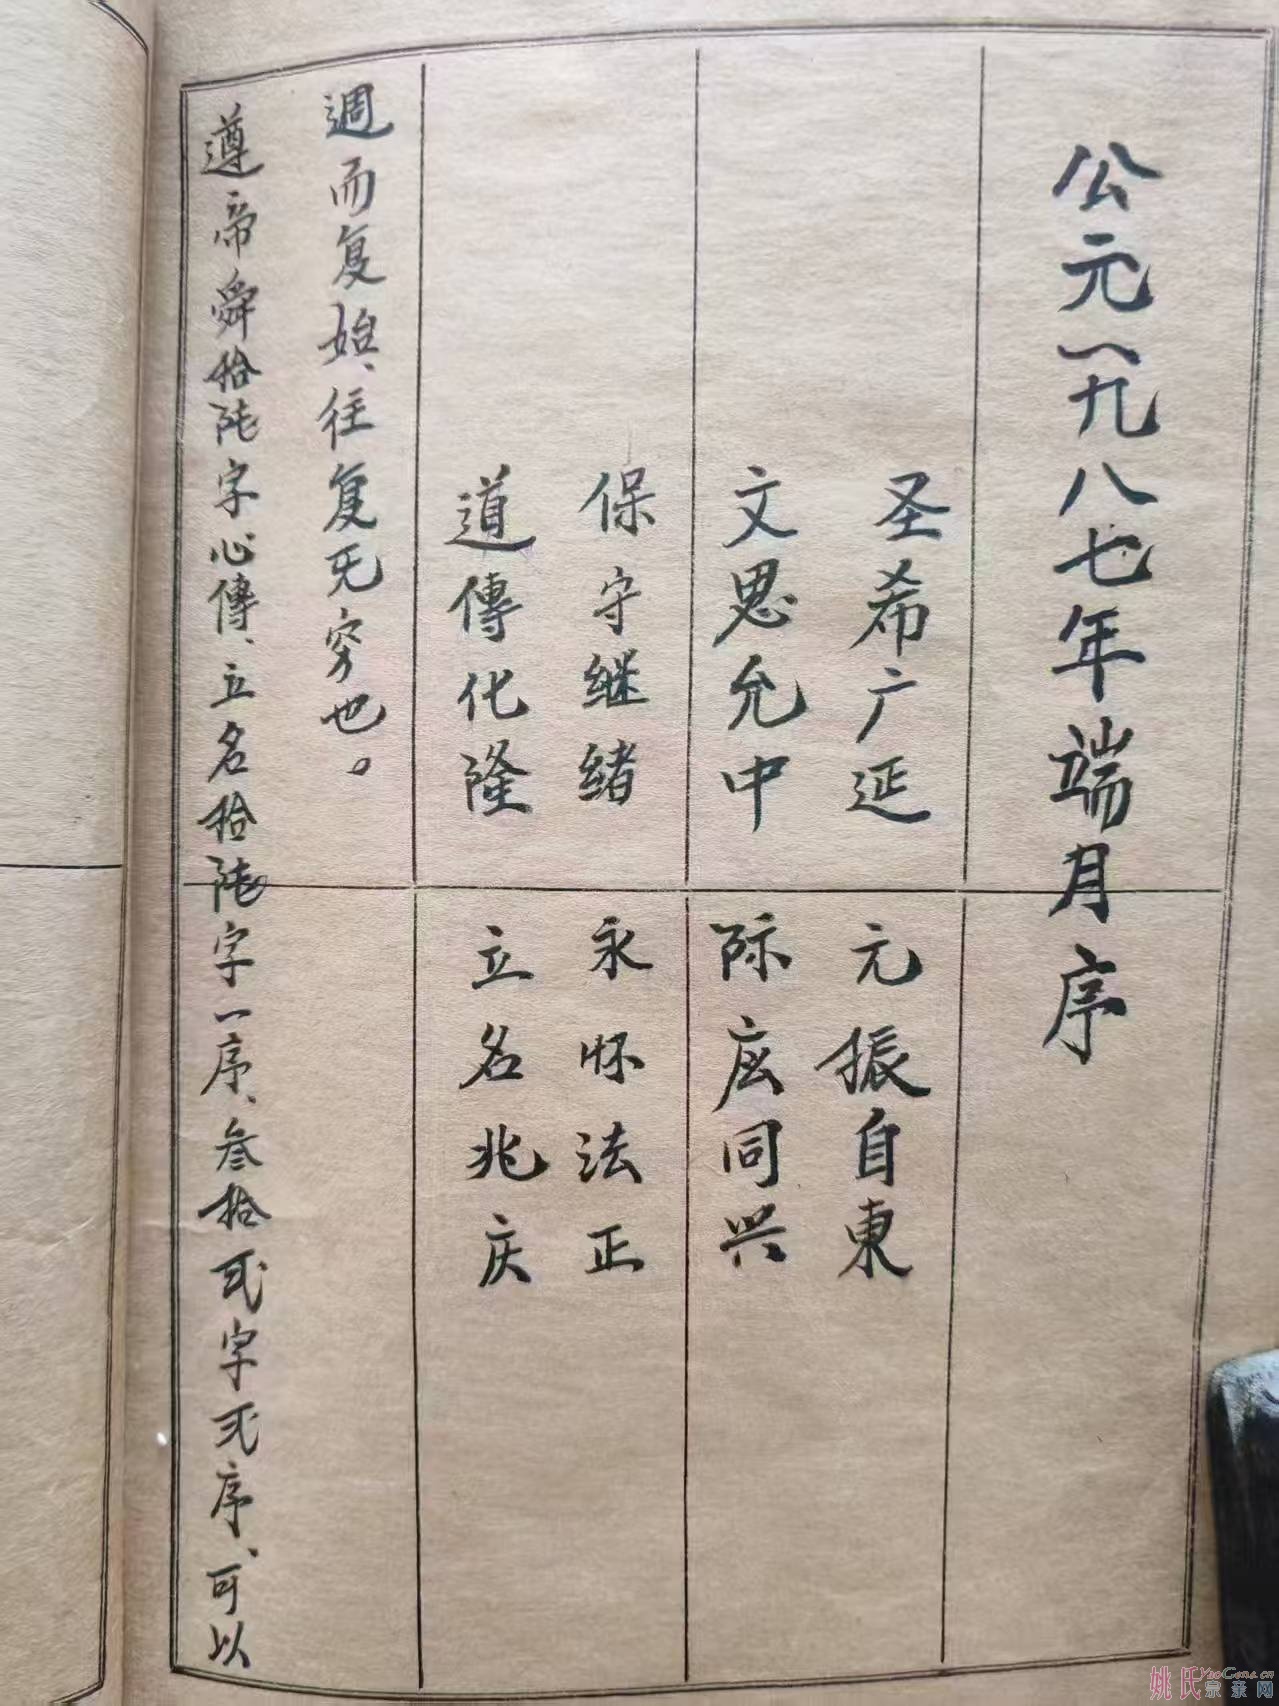 公元一九八七年端月序
圣希广延
文思允中
保守继绪
道傳化隆
元振自東
际同兴
永怀法正
立名兆庆
遵帝舜拾陆字心傳、立名拾陆字一序、叁拾弍字弍序、可以
週而复始、往复旡穷也。
姚氏宗亲网
YaoGens.cn